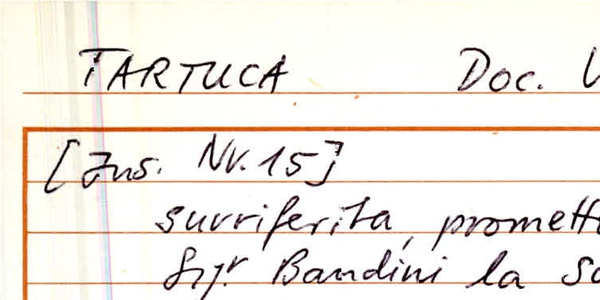 TARTUCA Doc. V
[Ins. Nr. 15]
surriferita, prometto
Sigr Bandini la so